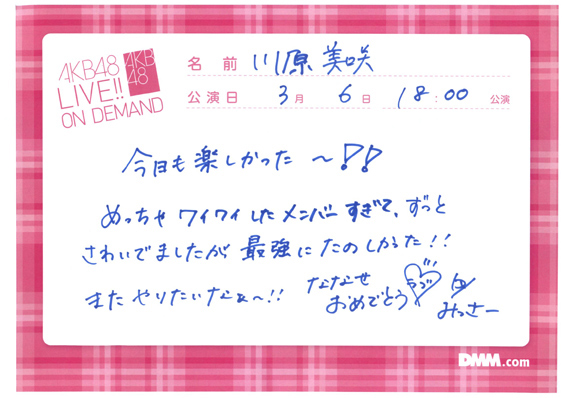 AKB48
LIVE!!
ON DEMAND
AKB
48
名前 川原美咲
公演日 3月 6日 18:00 公演
今日も楽しかった〜!!
めっちゃワイワイしたメンバーすぎて、ずっと
さわいでましたが最強にたのしかった!!
またやりたいなぁ〜!!
ななせ
おめでとう
みっさー
DMM.com